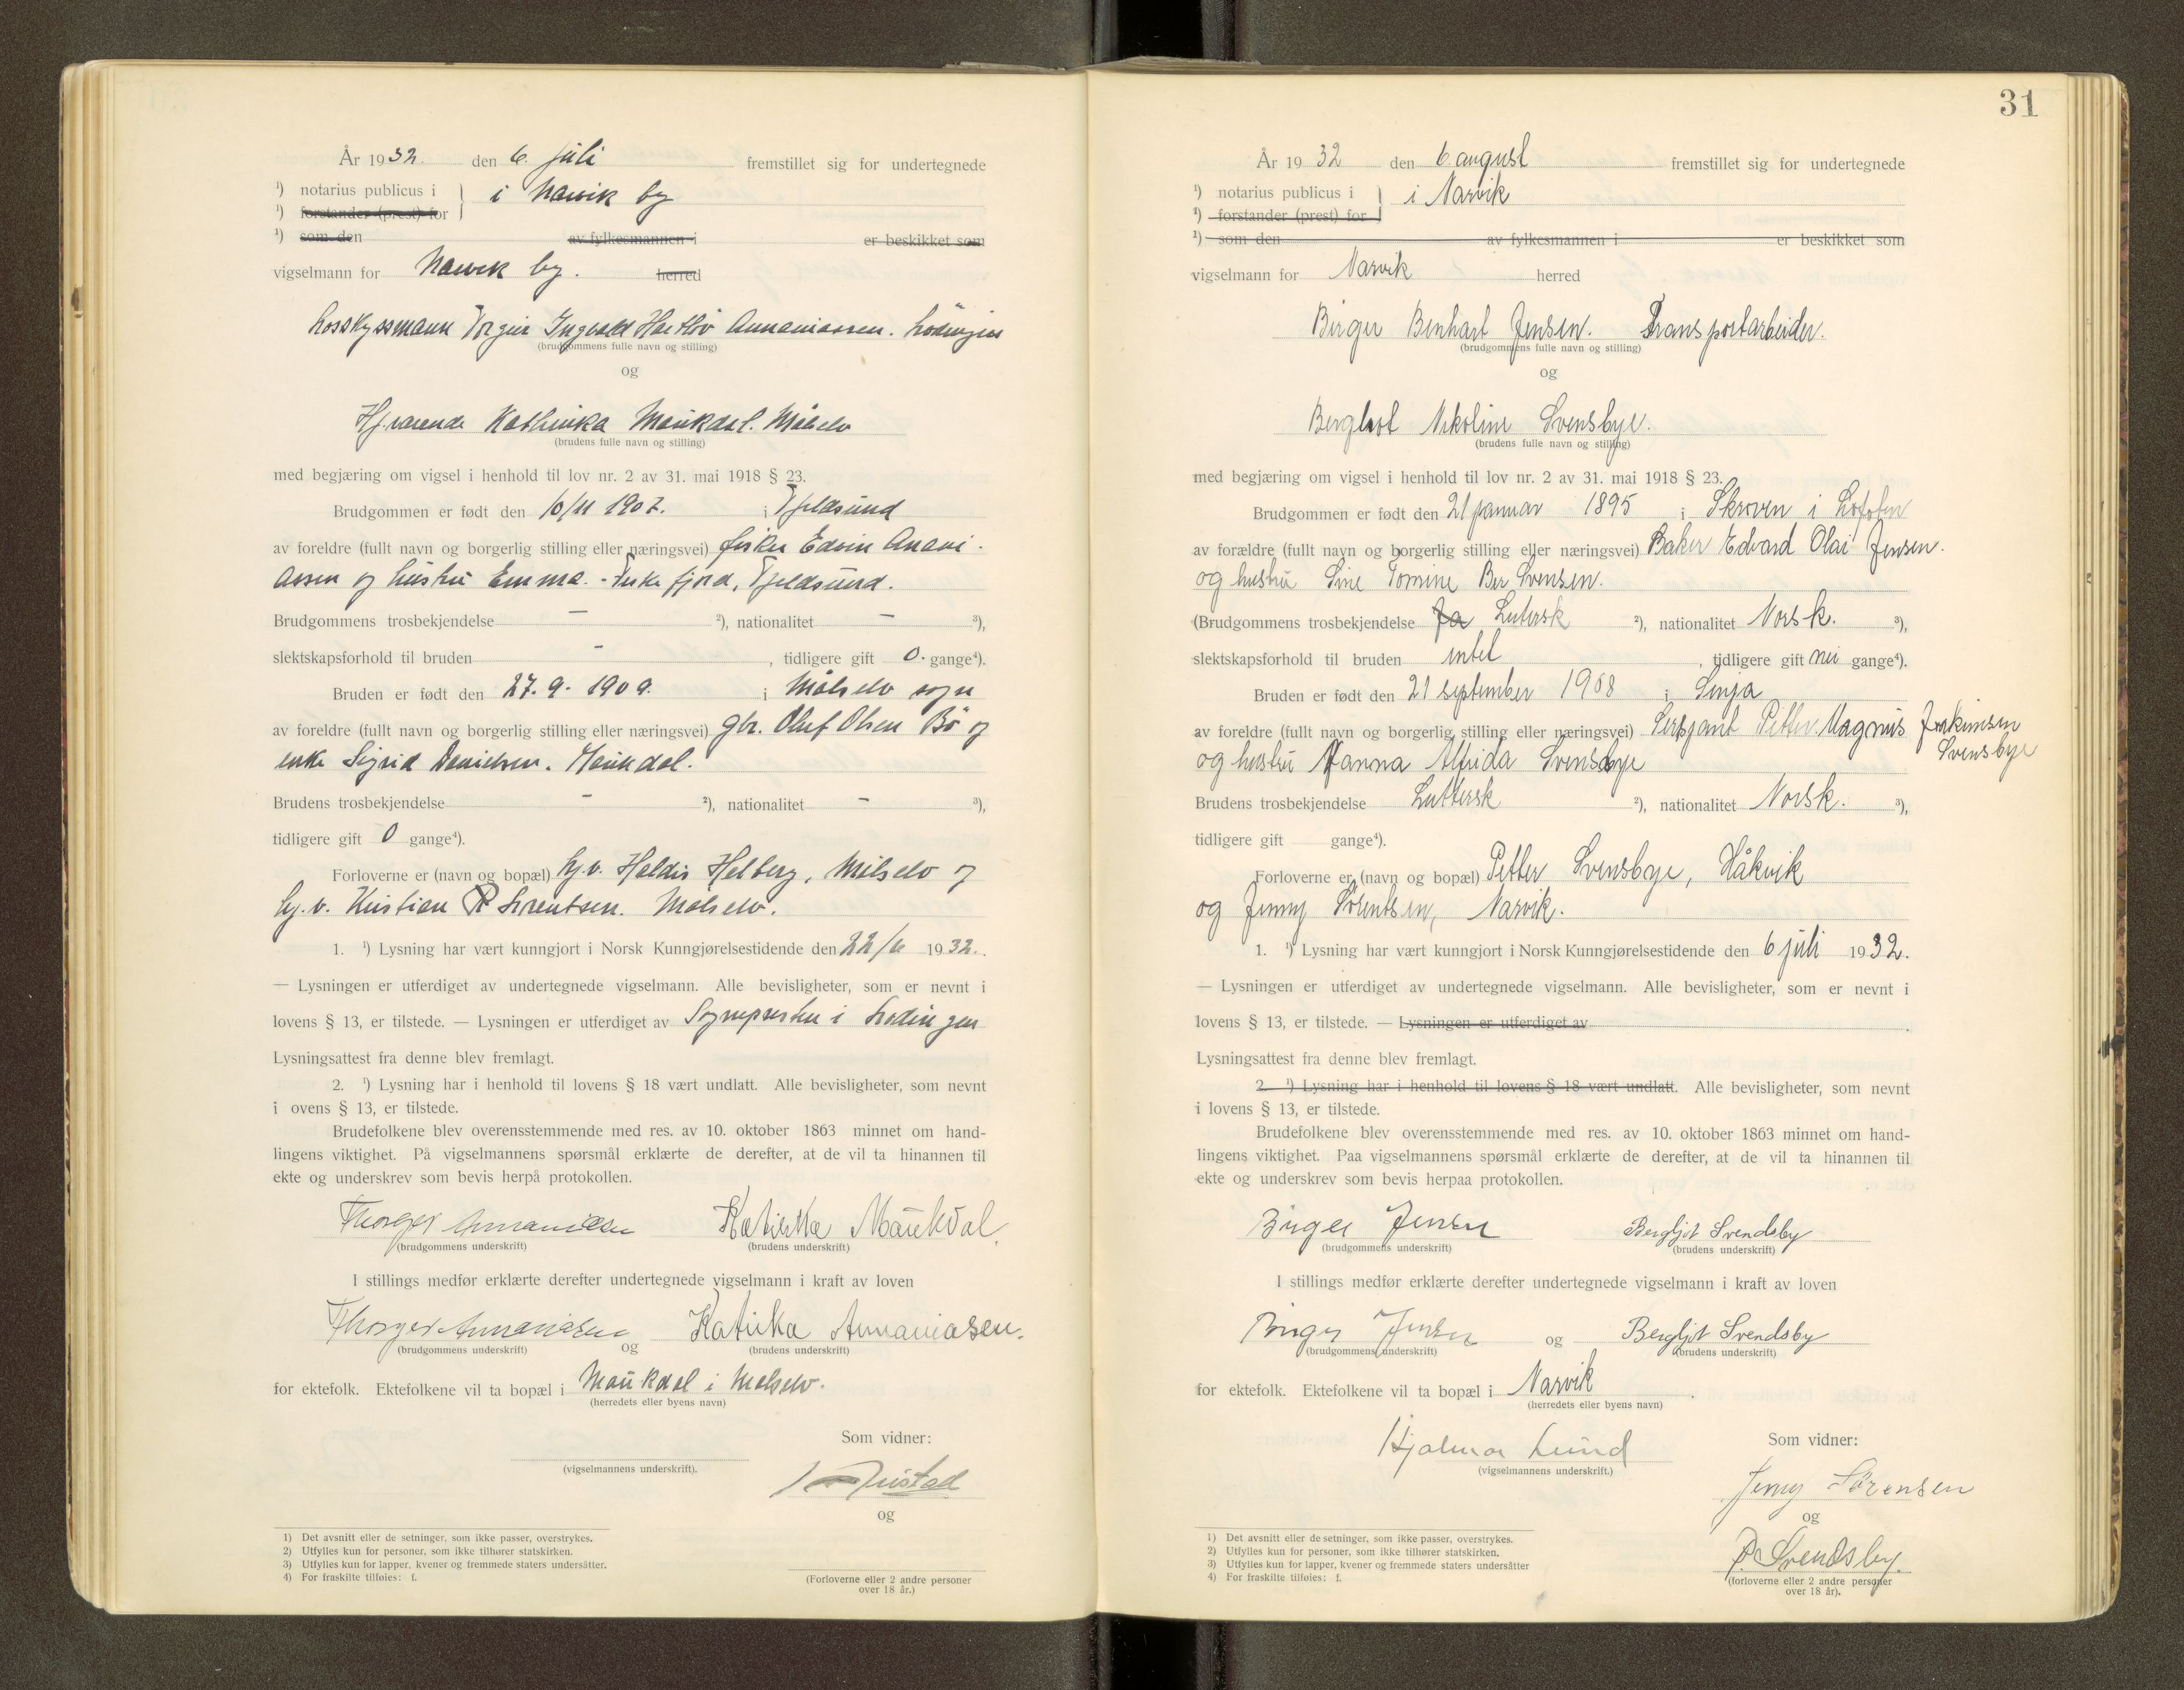 År 1932. den 6. juli fremstillet sig for undertegnede
¹) notarius publicus i } i Narvik by
¹) forstander (prest) for
¹) som den av fylkesmannen i er beskikket som
vigselmann for Narvik by. herred
Torgeir Ingvald Annaniassen. Lødingen
(brudgommens fulle navn og stilling)
og
Hj.værende Kathinka Maukdal. Målselv
(brudens fulle navn og stilling)
med begjæring om vigsel i henhold til lov nr. 2 av 31. mai 1918 § 23.
Brudgommen er født den 10/11 1907. i Tjeldsund
av foreldre (fullt navn og borgerlig stilling eller næringsvei) fisker Edvin Anani-
assen og hustru Emma. - fjord, Tjeldsund.
Brudgommens trosbekjendelse - ²), nationalitet - ³),
slektskapsforhold til bruden - , tidligere gift 0. gange⁴).
Bruden er født den 27. 9. 1909. i Målselv sogn
av foreldre (fullt navn og borgerlig stilling eller næringsvei) gbr. Oluf Olsen Bö og
enke Sigrid Danielsen. Maukdal.
Brudens trosbekjendelse - ²), nationalitet - ³),
tidligere gift 0 gange⁴).
Forloverne er (navn og bopæl) hj.v. Haldis Helberg, Målselv og
hj.v. Kristian R Målselv.
1. ¹) Lysning har vært kunngjort i Norsk Kunngjørelsestidende den 22/6 1932.
— Lysningen er utferdiget av undertegnede vigselmann. Alle bevisligheter, som er nevnt i
lovens § 13, er tilstede. — Lysningen er utferdiget av Sognepresten i Lödingen
Lysningsattest fra denne blev fremlagt.
2. ¹) Lysning har i henhold til lovens § 18 vært undlatt. Alle bevisligheter, som nevnt
i ovens § 13, er tilstede.
Brudefolkene blev overensstemmende med res. av 10. oktober 1863 minnet om hand-
lingens viktighet. På vigselmannens spørsmål erklærte de derefter, at de vil ta hinannen til
ekte og underskrev som bevis herpå protokollen.
Thorger Annaniasen Katinka Maukdal.
(brudgommens underskrift) (brudens underskrift)
I stillings medfør erklærte derefter undertegnede vigselmann i kraft av loven
Thorger Annaniasen og Katinka Annaniasen.
(brudgommens underskrift) (brudens underskrift)
for ektefolk. Ektefolkene vil ta bopæl i Maukdal i Målselv.
(herredets eller byens navn)
Som vidner:
(vigselmannens underskrift).
og
1) Det avsnitt eller de setninger, som ikke passer, overstrykes.
2) Utfylles kun for personer, som ikke tilhører statskirken.
3) Utfylles kun for lapper, kvener og fremmede staters undersåtter.
4) For fraskilte tilføies: f.
(Forloverne eller 2 andre personer
over 18 år.)
31
År 1932 den 6 august fremstillet sig for undertegnede
¹) notarius publicus i } i Narvik
¹) forstander (prest) for
¹) som den av fylkesmannen i er beskikket som
vigselmann for Narvik herred
Birger Benhart Jensen. Transportarbeider.
(brudgommens fulle navn og stilling)
og
Bergliot Nikoline Svensbye.
(brudens fulle navn og stilling)
med begjæring om vigsel i henhold til lov nr. 2 av 31. mai 1918 § 23.
Brudgommen er født den 21 januar 1895 i Skroven i Lofoten
av forældre (fullt navn og borgerlig stilling eller næringsvei) Baker Edvard Olai Jensen.
og hustru Sine Tomine Ber Svensen.
(Brudgommens trosbekjendelse Ja Lutersk ²), nationalitet Norsk. ³),
slektskapsforhold til bruden intet , tidligere gift nei gange⁴).
Bruden er født den 21 september 1908 i Senja
av foreldre (fullt navn og borgerlig stilling eller næringsvei) Sersjant Petter Magnus Joakimsen
Svensbye
og hustru Nanna Alfrida Svensbye
Brudens trosbekjendelse Luttersk ²), nationalitet Norsk. ³),
tidligere gift gange⁴).
Forloverne er (navn og bopæl) Petter Svensbye, Håkvik
og Jenny Sörentsen, Narvik.
1. ¹) Lysning har vært kunngjort i Norsk Kunngjørelsestidende den 6 juli 1932.
— Lysningen er utferdiget av undertegnede vigselmann. Alle bevisligheter, som er nevnt i
lovens § 13, er tilstede. — Lysningen er utferdiget av .
Lysningsattest fra denne blev fremlagt.
2. ¹) Lysning har i henhold til lovens § 18 vært undlatt. Alle bevisligheter, som nevnt
i lovens § 13, er tilstede.
Brudefolkene blev overensstemmende med res. av 10. oktober 1863 minnet om hand-
lingens viktighet. Paa vigselmannens spørsmål erklærte de derefter, at de vil ta hinannen til
ekte og underskrev som bevis herpaa protokollen.
Birger Jensen Bergljot Svendsby
(brudgommens underskrift) (brudens underskrift)
I stillings medfør erklærte derefter undertegnede vigselmann i kraft av loven
Birger Jensen og Bergljot Svendsby
(brudgommens underskrift) (brudens underskrift)
for ektefolk. Ektefolkene vil ta bopæl i Narvik .
(herredets eller byens navn)
Hjalmar Lund Som vidner:
(vigselmannens underskrift.)
Jenny Sörensen
og
P. Svendsby.
(forloverne eller 2 andre personer
over 18 år).
1) Det avsnitt eller de setninger, som ikke passer, overstrykes.
2) Utfylles kun for personer, som ikke tilhører statskirken.
3) Utfylles kun for lapper, kvener og fremmede staters undersåtter
4) For fraskilte tilføies: f.